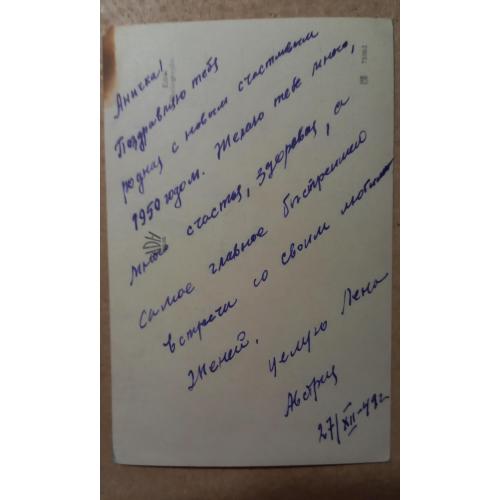 Аничка!
Поздравляю тебя
родная с новым счастливым
1950 годом. Желаю тебе много,
много счастья, здоровья, а
самое главное быстрейшей
встречи со своим любимым
Женей.
Целую Лена
Австрия
27/XII-49г